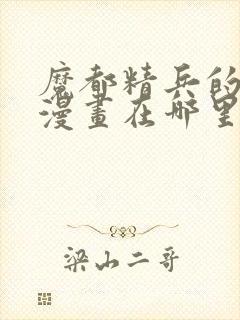 魔都精兵的
漫畫在哪里
梁山二哥